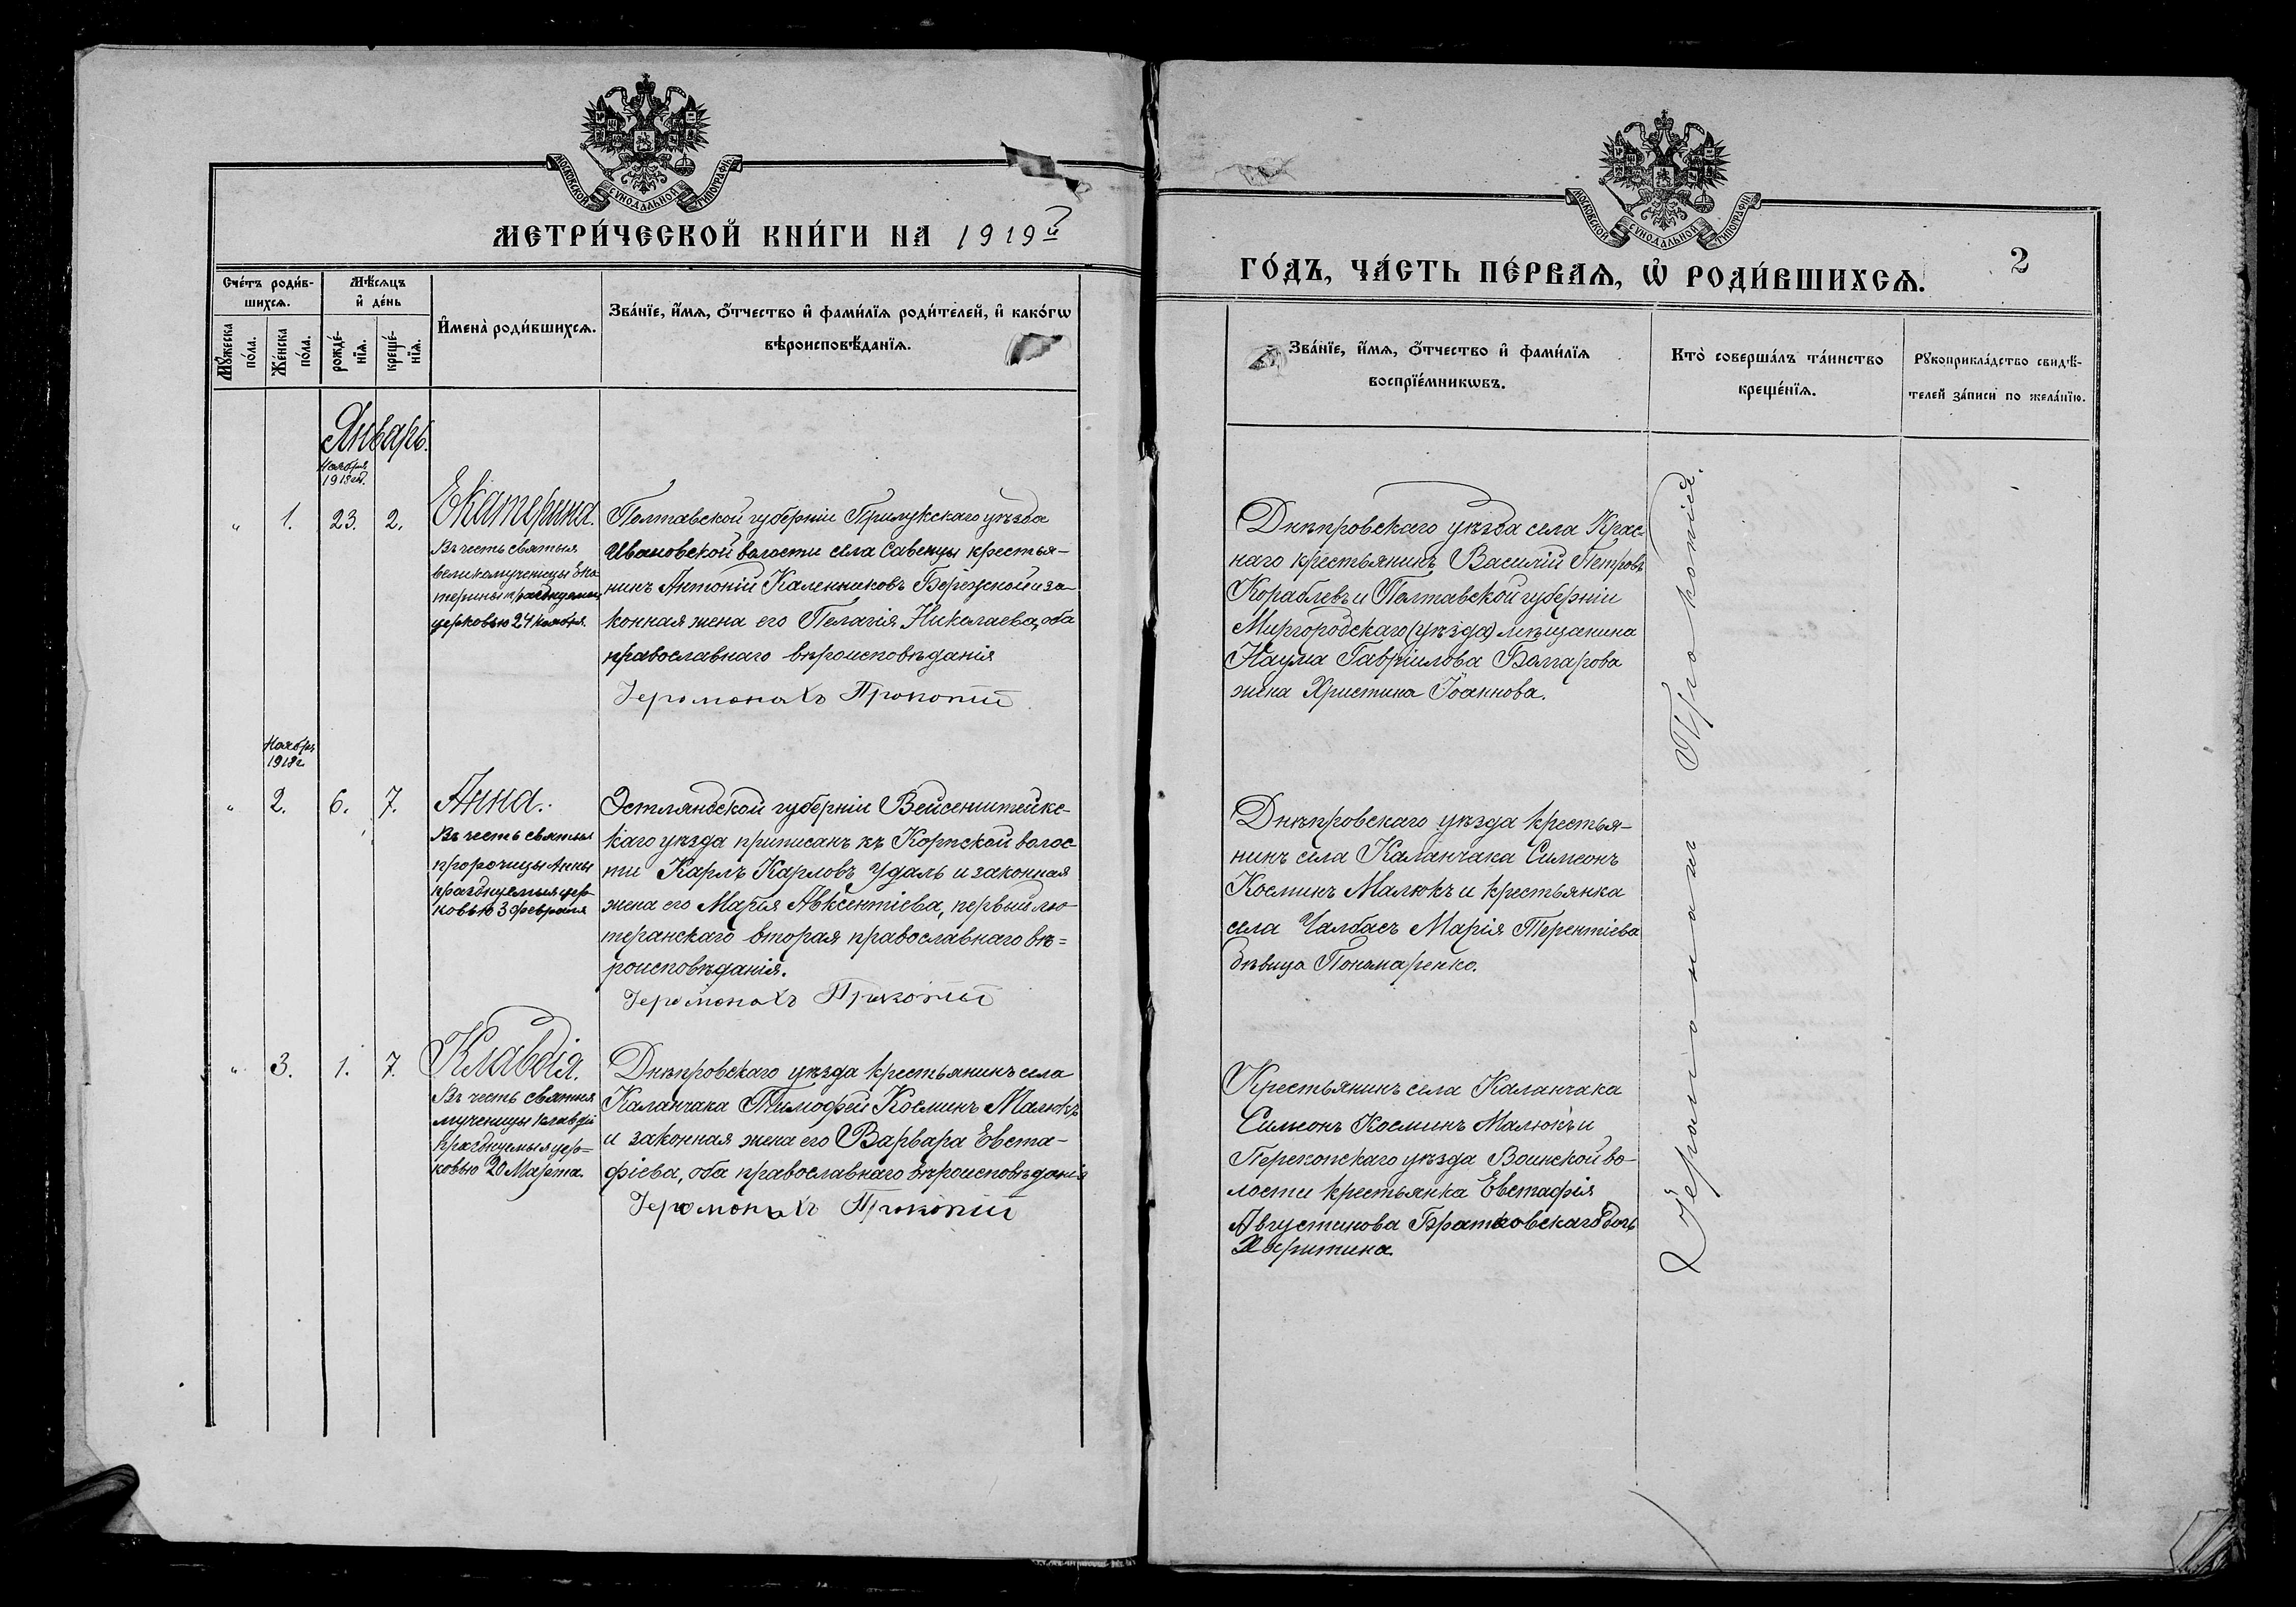 МОСКОВСКОЙ СѴНОДАЛЬНОЙ ТИПОГРАФІИ
МЕТРИ́ЧЕСКОЙ КНИ́ГИ НА 1919й
Счéтъ роди́в-
шихсѧ.
Мꙋ́жеска
по́ла.
Же́нска
по́ла.
Мѣ́сѧцъ
и҆ де́нь
рожде́-
нїѧ.
креще́-
нїѧ.
И҆мена̀ роди́вшихсѧ.
Зва́нїе, и҆́мѧ, ѻ҆́тчество и҆ фами́лїѧ роди́телей, и҆ како́гѡ
вѣроисповѣ́данїѧ.
Январь.
Ноября
1918 г.
" 1. 23. 2.
Екатерина.
Въ честь святыя
великомученицы Ека-
терины празднуемыя
церковью 24 ноября.
Полтавской губерніи Прилукскаго уѣзда
Ивановской волости села Савенцы крестья-
нинъ Антоній Каленниковъ Бережной и за-
конная жена его Пелагія Николаева, оба
православнаго вѣроисповѣданія
Іеромонахъ Прокопій
Ноябрь
1918 г.
" 2. 6. 7.
Анна.
Въ честь святыя
пророчицы Анны
празднуемыя цер-
ковью 3 февраля
Эстляндской губерніи Вейсенштейнс-
каго уѣзда приписанъ къ Корпской волос-
ти Карлъ Карловъ Удаль и законная
жена его Марія Авксентіева, первый лю-
теранскаго вторая православнаго вѣ=
роисповѣданія.
Іеромонахъ Прокопій
" 3. 1. 7.
Клавдія.
Въ честь святыя
мученицы Клавдіи
празднуемыя цер=
ковью 20 Марта.
Днѣпровскаго уѣзда крестьянинъ села
Каланчака Тимофей Косминъ Малюкъ
и законная жена его Варвара Евста-
фіева, оба православнаго вѣроисповѣданія
Іеромонахъ Прокопій
МОСКОВСКОЙ СѴНОДАЛЬНОЙ ТИПОГРАФІИ
ГО́ДЪ, ЧА́СТЬ ПЕ́РВАѦ, Ѽ РОДИ́ВШИХСѦ.
2
Зва́нїе, и҆́мѧ, ѻ҆́тчество и҆ фами́лїѧ
воспрїе́мникѡвъ.
Кто̀ соверша́лъ та́инство
креще́нїѧ.
Рꙋкоприкла́дство свидѣ́-
телей за́писи по жела́нїю.
Днѣпровскаго уѣзда села Крас-
наго крестьянинъ Василій Петровъ
Кораблевъ и Полтавской губерніи
Миргородскаго (уѣзда) мѣщанина
Наума Гавріилова Болгарова
жена Христина Іоаннова.
Днѣпровскаго уѣзда крестья-
нинъ села Каланчака Симеонъ
Косминъ Малюкъ и крестьянка
села Чалбасъ Марія Терентіева
дѣвица Пономаренко.
Крестьянинъ села Каланчака
Симеонъ Косминъ Малюкъ и
Перекопскаго уѣзда Воинской во-
лости крестьянка Евстафія
Августинова Братковскаго дочь
Харитина.
Іеромонахъ Прокопій.